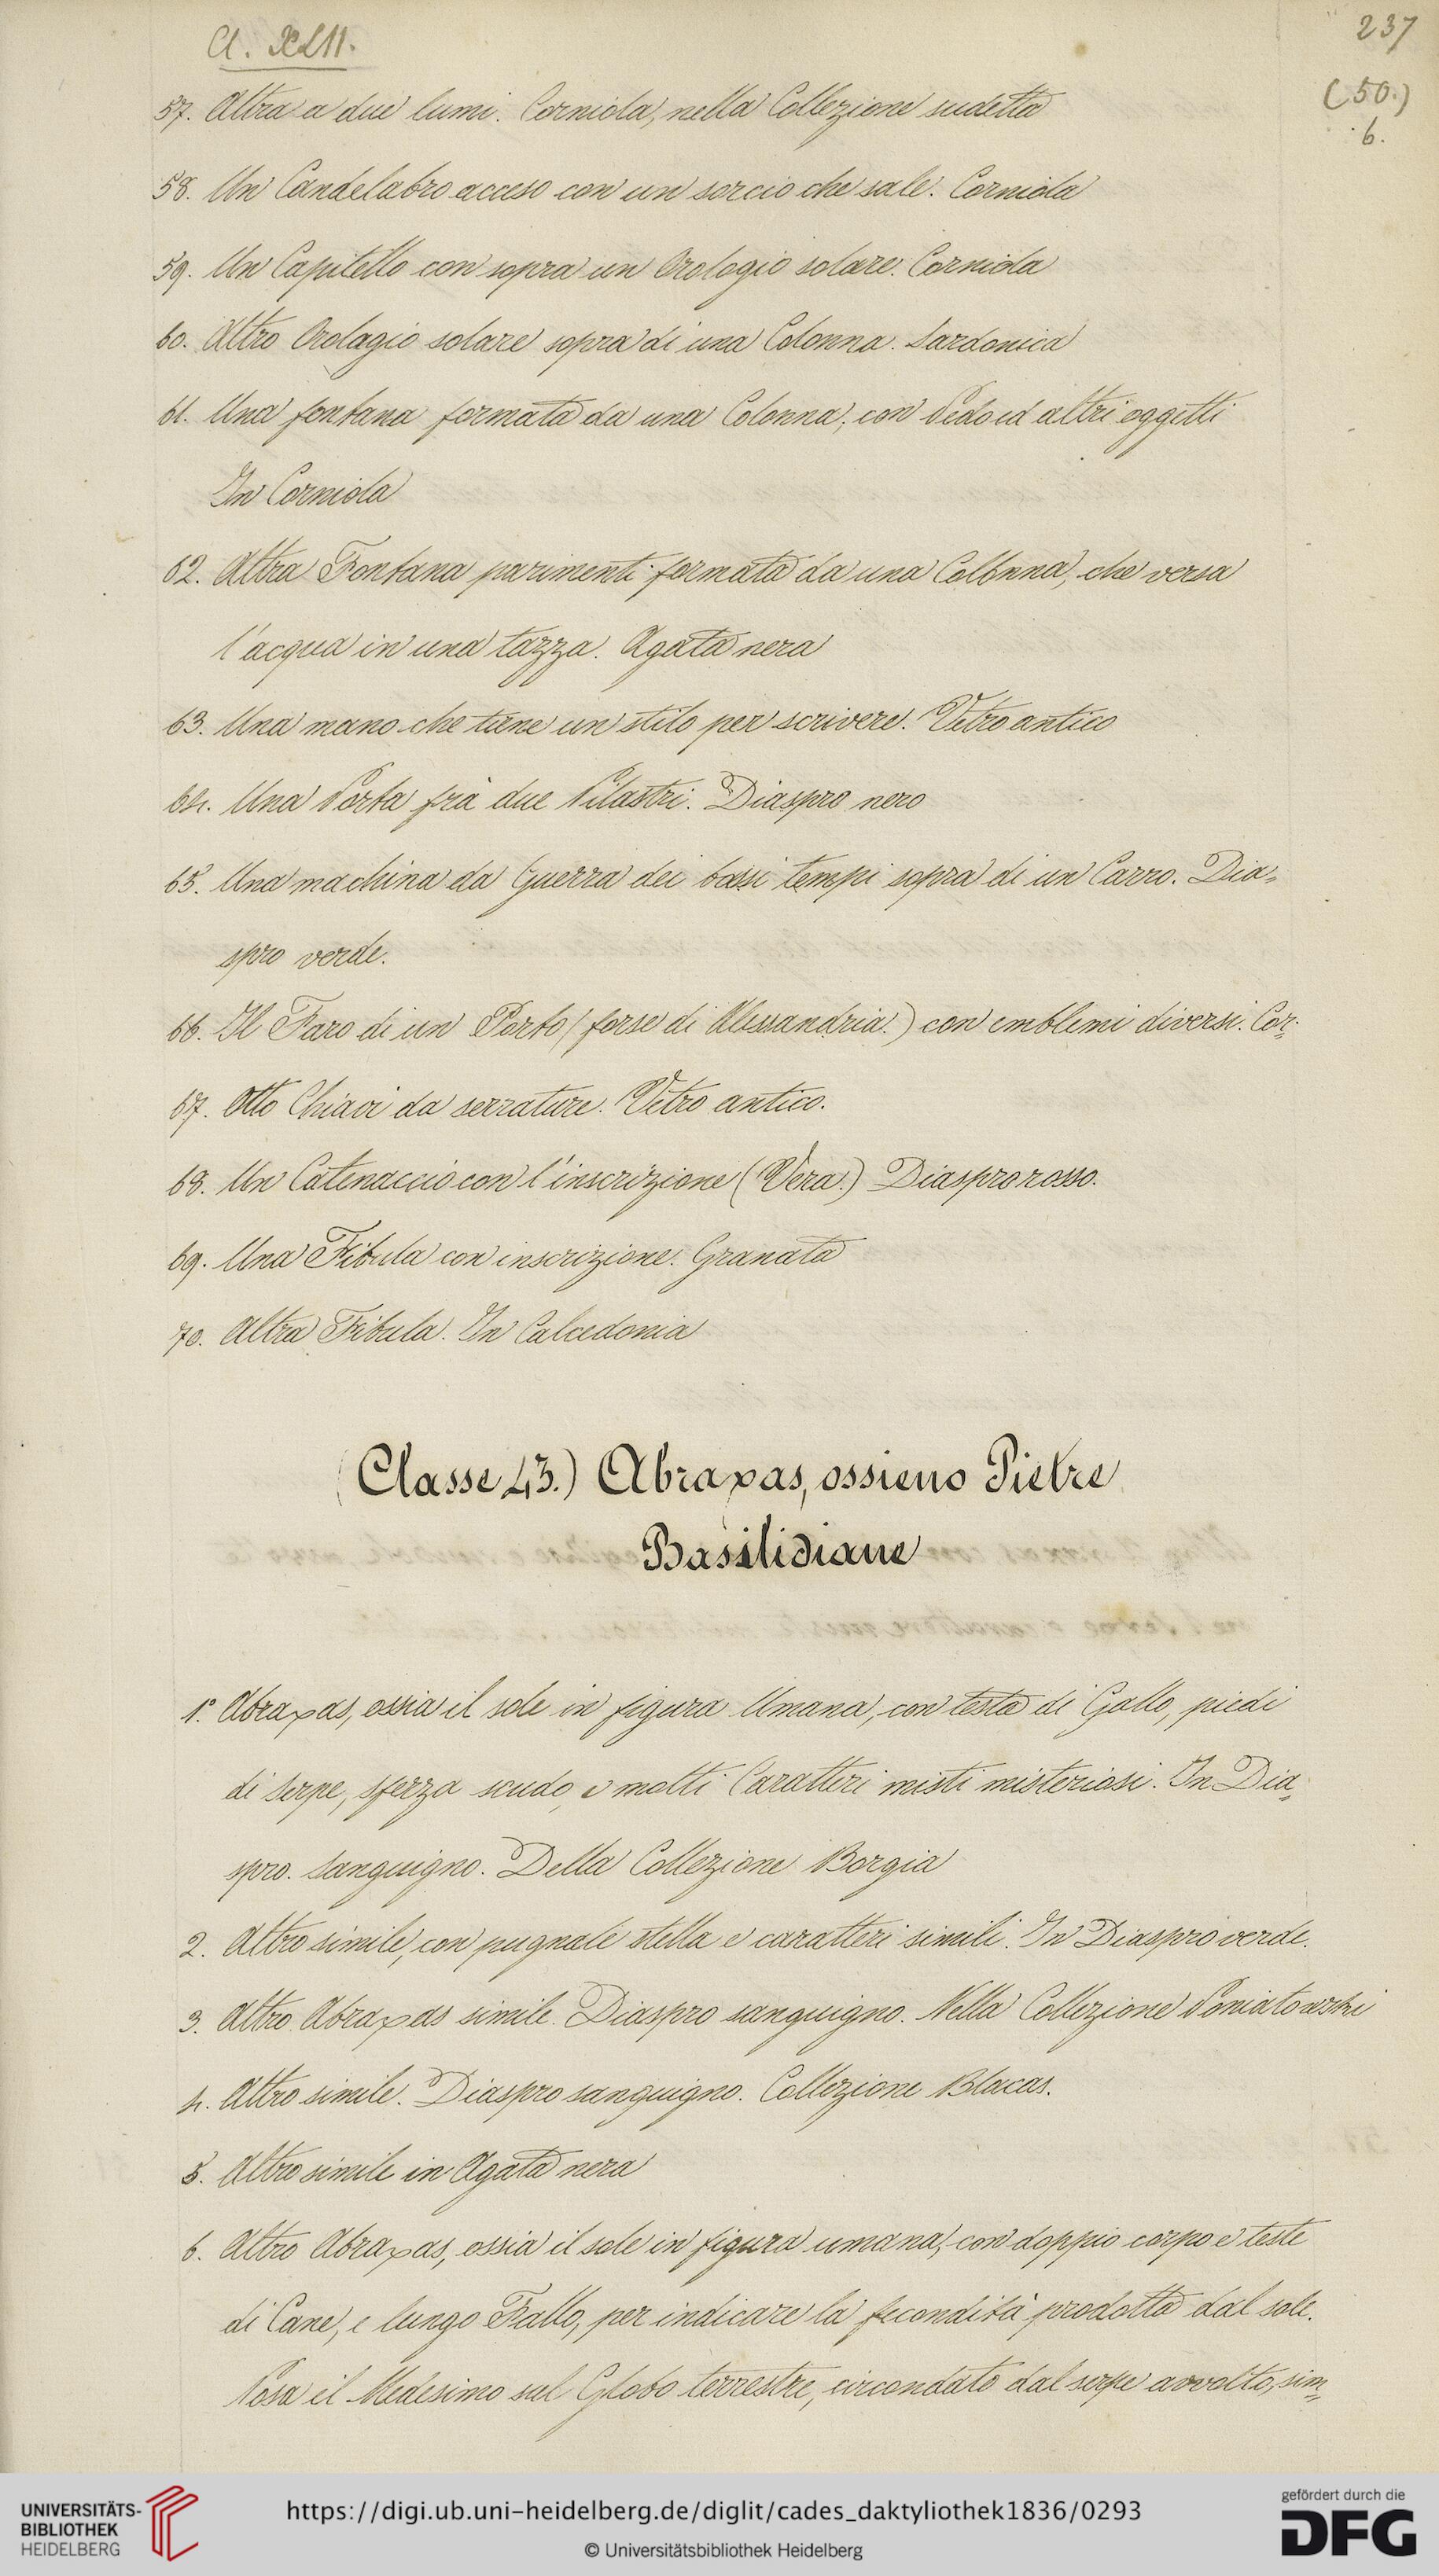 Cl. XLII.
237
(50.)
6.
57. Altra a due lumi. Corniola, nella Collezione sudetta
58. Un Candelabro acceso con un sorcio che sale. Corniola
59. Un Capitello con sopra un Orologio solare. Corniola
60. Altro Orologio solare sopra di una Colonna. Sardonica
61. Una fontana formata da una Colonna, con Pedo ed altri oggetti
In Corniola
62. Altra Fontana parimenti formata da una Collonna, che versa
l'acqua in una tazza. Agata nera
63. Una mano che tiene un stilo per scrivere. Vetro antico
64. Una Porta frà due Pilastri. Diaspro nero
65. Una machina da Guerra dei bassi tempi sopra di un Carro. Dia=
spro verde.
66. Il Faro di un Porto (forse di Alessandria.) con emblemi diversi. Cor.=
67. Otto Chiavi da serrature. Vetro antico.
68. Un Catenaccio con l'inscrizione (Vera.) Diaspro rosso.
69. Una Fibula con inscrizione. Granata
70. Altra Fibula. In Calcedonia
(Classe 43.) Abraxas, ossieno Pietre
Basilidiane
1.° Abraxas, ossia il sole in figura Umana, con testa di Gallo, piedi
di serpe, sferza scudo, e molti Caratteri misti misteriosi. In Dia=
spro. sanguigno. Della Collezione Borgia
2. Altro simile, con pugnale stella e caratteri simili. In Diaspro verde.
3. Altro Abraxas simile. Diaspro sanguigno. Nella Collezione Poniatowski
4. Altro simile. Diaspro sanguigno. Collezione Blacas.
5. Altro simile in Agata nera
6. Altro Abraxas, ossia il sole in figura umana, con doppio corpo e teste
di Cane, e lungo Fallo, per indicare la fecondità prodotta dal sole.
Posa il Medesimo sul Globo terrestre, circondato dal serpe avvolto, sim=
UNIVERSITÄTS-
BIBLIOTHEK
HEIDELBERG
https://digi.ub.uni-heidelberg.de/diglit/cades_daktyliothek1836/0293
© Universitätsbibliothek Heidelberg
gefördert durch die
DFG